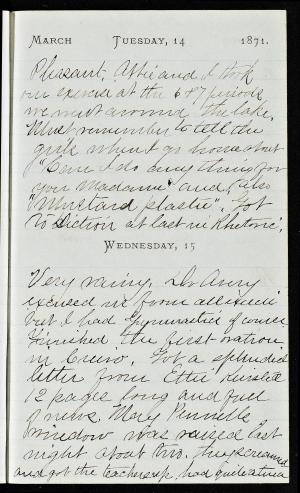 MARCH TUESDAY, 14 1871.
Pleasant. Abbie and I took
our exercise at the 6 & 7 periods
we went around the lake.
Must remember to tell the
girls when I go home about
"Can I do anything for
you Madame" and also
"Mustard plaster". Got
to Diction at last in Rhetoric.
WEDNESDAY, 15
Very rainy. Dr Avery
excused me from all exercise
but I had Gymnastics of course.
Finished the first oration
in Cicero. Got a splendid
letter from Ettie
12 pages long and full
of news. Mary
window was raised last
night about two. They screamed
and got the teachers up, had quite a time